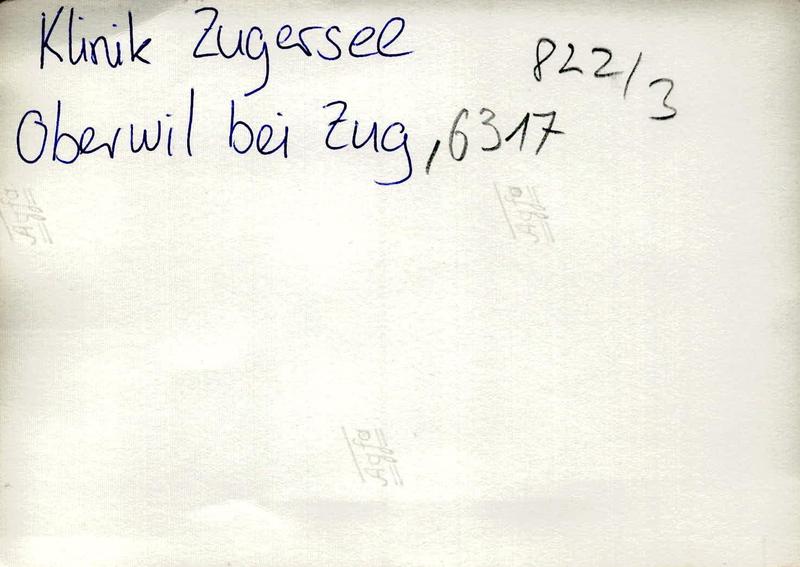 Klinik Zugersee
822/3
Oberwil bei Zug, 6317
Agfa
Agfa
Agfa